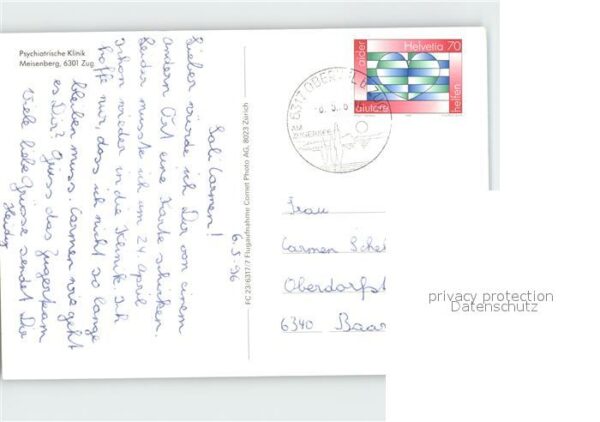 Psychiatrische Klinik
Meisenberg, 6301 Zug
6.5.96
Sali Carmen!
Lieber würde ich Dir von einem
andern Ort eine Karte schicken.
Leider musste ich am 24. April
schon wieder in die Klinik. Ich
hoffe nur, dass ich nicht so lange
bleiben muss. Carmen wie geht
es Dir? Gruss das Zugerteam
Viele liebe Grüsse sendet Dir
Heidy
FC 23/6317/7 Flugaufnahme Comet Photo AG, 8023 Zürich
aider
Helvetia 70
aiutare
helfen
6317 OBERWIL
AM
ZUGERSEE
Frau
Carmen
Oberdorfst
6340 Baar
privacy protection
Datenschutz